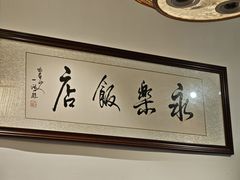 永樂飯店